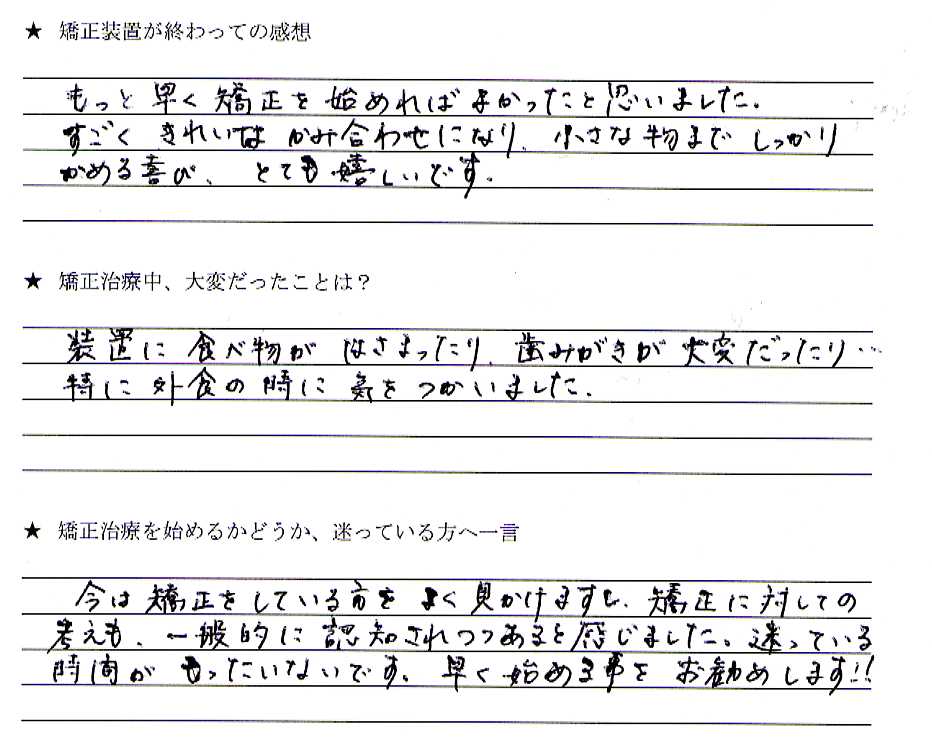 ★ 矯正装置が終わっての感想
もっと早く矯正を始めればよかったと思いました。
すごくきれいなかみ合わせになり、小さな物までしっかり
かめる喜び、とても嬉しいです。
★ 矯正治療中、大変だったことは？
装置に食べ物がはさまったり、歯みがきが大変だったり…
特に外食の時に気をつかいました。
★ 矯正治療を始めるかどうか、迷っている方へ一言
今は矯正をしている方をよく見かけますし、矯正に対しての
考えも、一般的に認知されつつあると感じました。迷っている
時間がもったいないです。早く始める事をお勧めします!!